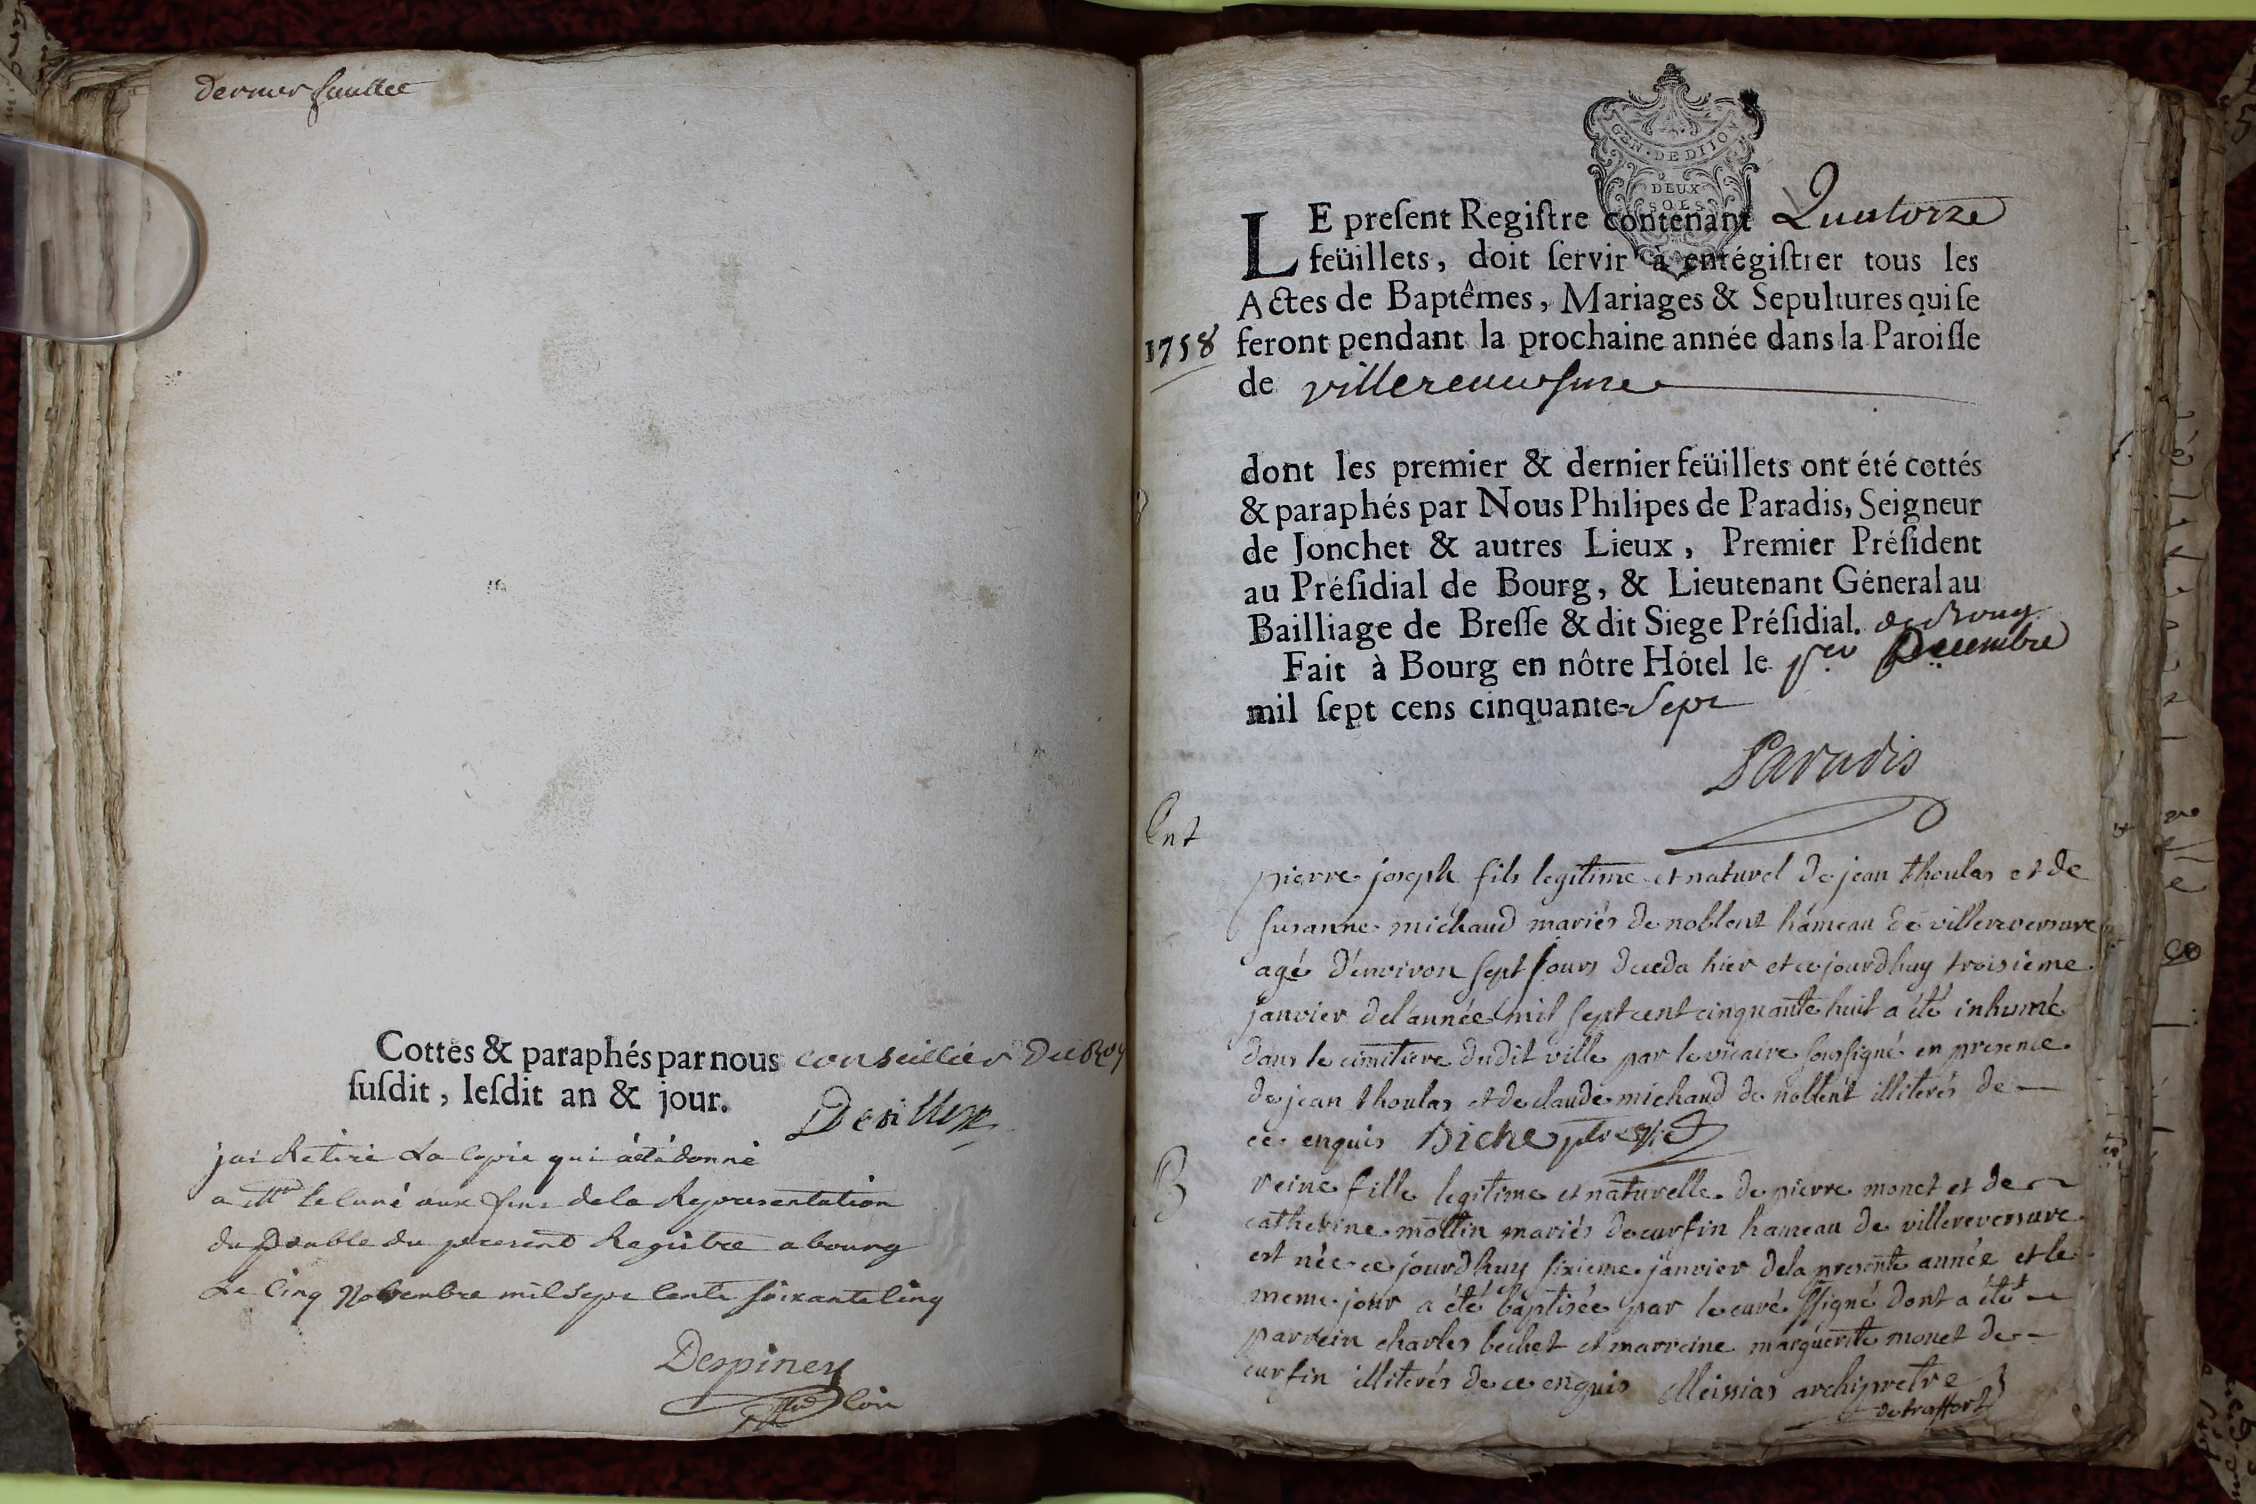 dernier feuillet
Cottés & paraphés par nous conseiller du Roy
susdit, lesdit an & jour.
Desilles
jai Retiré La Copie qui a été donné
a Mr le Curé aux fins de la Representation
du Double du present Registre a bourg
Le Cinq Novembre mil sept Cents soixante Cinq
Despiney
GEN. DE DIJON
DEUX
SOLS
LE present Registre contenant Quatorze
feüillets, doit servir à enrégistrer tous les
Actes de Baptêmes, Mariages & Sepultures qui se
1758
feront pendant la prochaine année dans la Paroisse
de villereversure
dont les premier & dernier feüillets ont été cottés
& paraphés par Nous Philipes de Paradis, Seigneur
de Jonchet & autres Lieux, Premier Président
au Présidial de Bourg, & Lieutenant Géneral au
Bailliage de Bresse & dit Siege Présidial. de Bourg
Fait à Bourg en nôtre Hôtel le 1er Decembre
mil sept cens cinquante-Sept
Paradis
Ent
pierre joseph fils legitime et naturel de jean thoulas et de
susanne michaud mariés de noblent hameau de villereversure
agé d'environ sept jours deceda hier et ce jourdhuy troisieme
janvier de l'année mil sept cent cinquante huit a été inhumé
dans le cimetiere dudit ville par le vicaire soussigné en presence
de jean thoulas et de claude michaud de noblent illiterés de
ce enquis Diche ptre vic
B
reine fille legitime et naturelle de pierre monet et de
catherine mottin mariés de curfin hameau de villereversure
est née ce jourdhuy sixieme janvier de la presente année et le
meme jour a été baptisée par le curé ssigné dont a été
parrein charles bechet et marreine marguerite monet de
curfin illiterés de ce enquis Meissias archipretre
de treffort